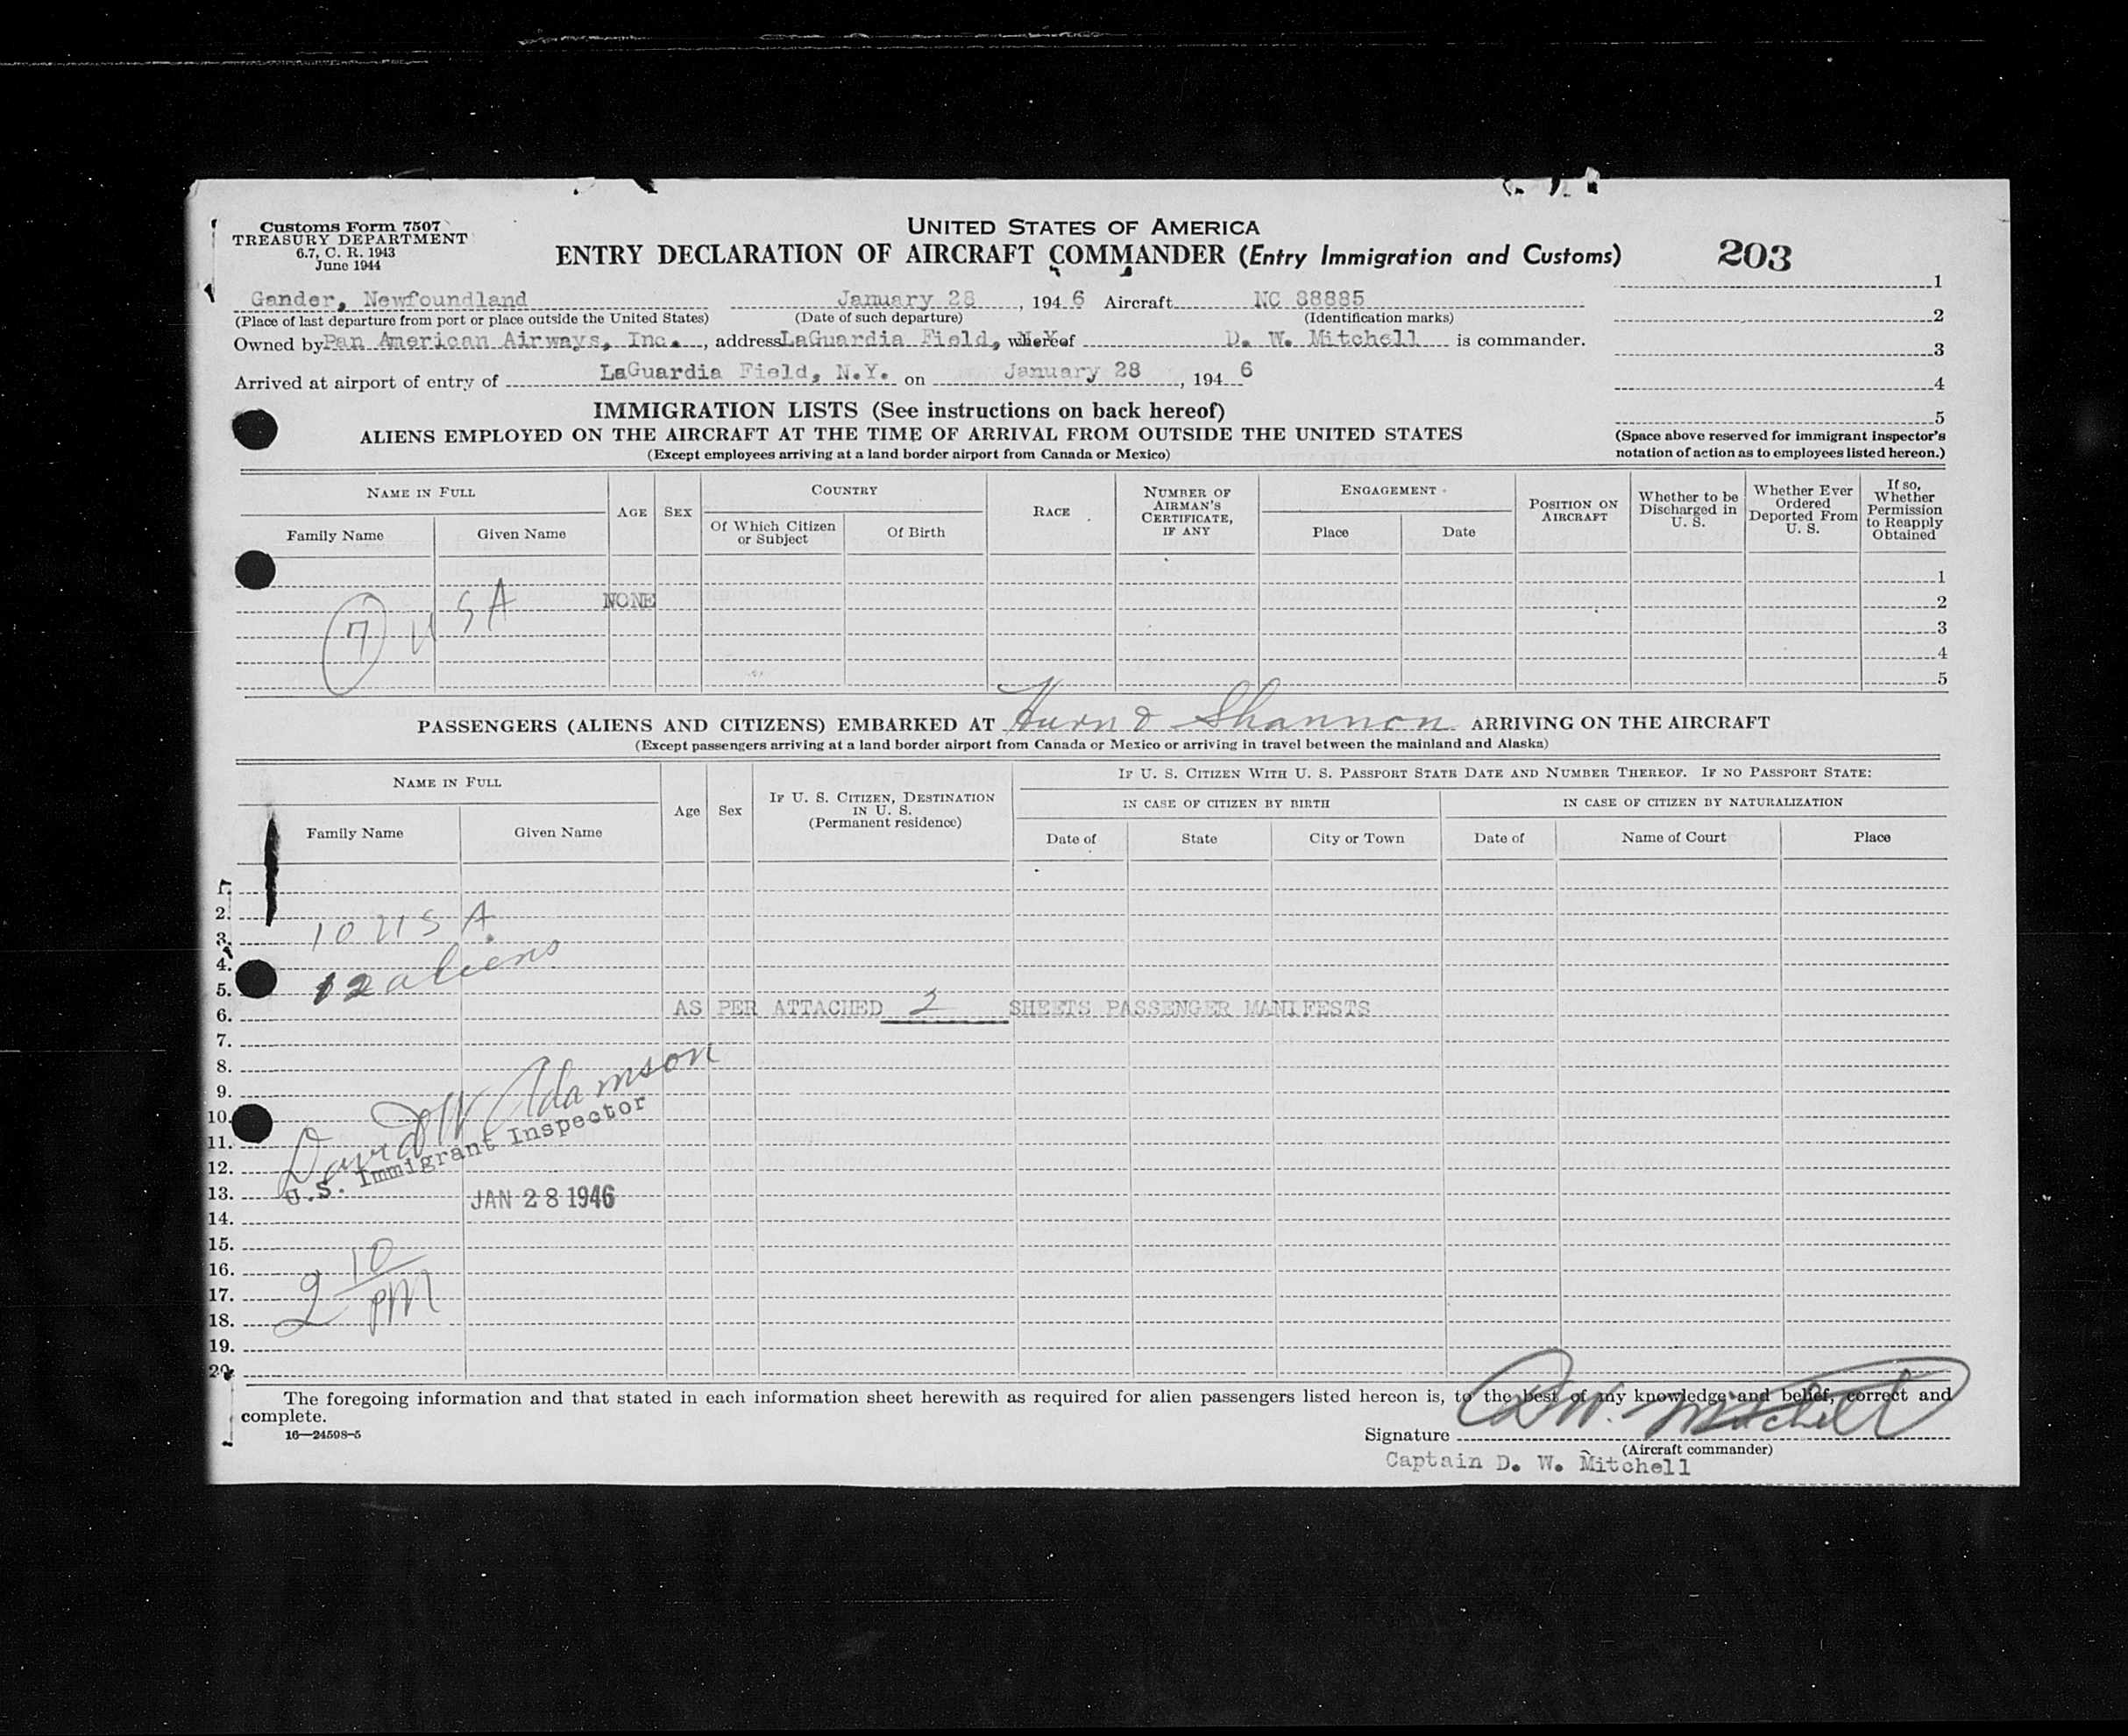 Customs Form 7507
TREASURY DEPARTMENT
6.7, C. R. 1943
June 1944
UNITED STATES OF AMERICA
ENTRY DECLARATION OF AIRCRAFT COMMANDER (Entry Immigration and Customs)
203
Gander, Newfoundland January 28, 1946 Aircraft NC 88885
(Place of last departure from port or place outside the United States) (Date of such departure) (Identification marks)
Owned by Pan American Airways, Inc., address LaGuardia Field, N.Y. whereof D. W. Mitchell is commander.
Arrived at airport of entry of LaGuardia Field, N.Y. on January 28, 1946
1
2
3
4
5
(Space above reserved for immigrant inspector's notation of action as to employees listed hereon.)
IMMIGRATION LISTS (See instructions on back hereof)
ALIENS EMPLOYED ON THE AIRCRAFT AT THE TIME OF ARRIVAL FROM OUTSIDE THE UNITED STATES
(Except employees arriving at a land border airport from Canada or Mexico)
NAME IN FULL
Family Name
Given Name
AGE
SEX
COUNTRY
Of Which Citizen or Subject
Of Birth
RACE
NUMBER OF AIRMAN'S CERTIFICATE, IF ANY
ENGAGEMENT
Place
Date
POSITION ON AIRCRAFT
Whether to be Discharged in U. S.
Whether Ever Ordered Deported From U. S.
If so, Whether Permission to Reapply Obtained
1
NONE 2
7 USA 3
4
5
PASSENGERS (ALIENS AND CITIZENS) EMBARKED AT Hurn & Shannon ARRIVING ON THE AIRCRAFT
(Except passengers arriving at a land border airport from Canada or Mexico or arriving in travel between the mainland and Alaska)
NAME IN FULL
Family Name
Given Name
Age
Sex
IF U. S. CITIZEN, DESTINATION IN U. S.
(Permanent residence)
IF U. S. CITIZEN WITH U. S. PASSPORT STATE DATE AND NUMBER THEREOF. IF NO PASSPORT STATE:
IN CASE OF CITIZEN BY BIRTH
IN CASE OF CITIZEN BY NATURALIZATION
Date of
State
City or Town
Date of
Name of Court
Place
1.
2.
3. 10 USA
4.
5. 12 aliens
6. AS PER ATTACHED 2 SHEETS PASSENGER MANIFESTS
7.
8.
9.
10.
11. David W Adamson
12. U.S. Immigrant Inspector
13. JAN 28 1946
14.
15.
16. 2 10
17. PM
18.
19.
20.
The foregoing information and that stated in each information sheet herewith as required for alien passengers listed hereon is, to the best of my knowledge and belief, correct and
complete.
16—24598-5
Signature D W. Mitchell
(Aircraft commander)
Captain D. W. Mitchell